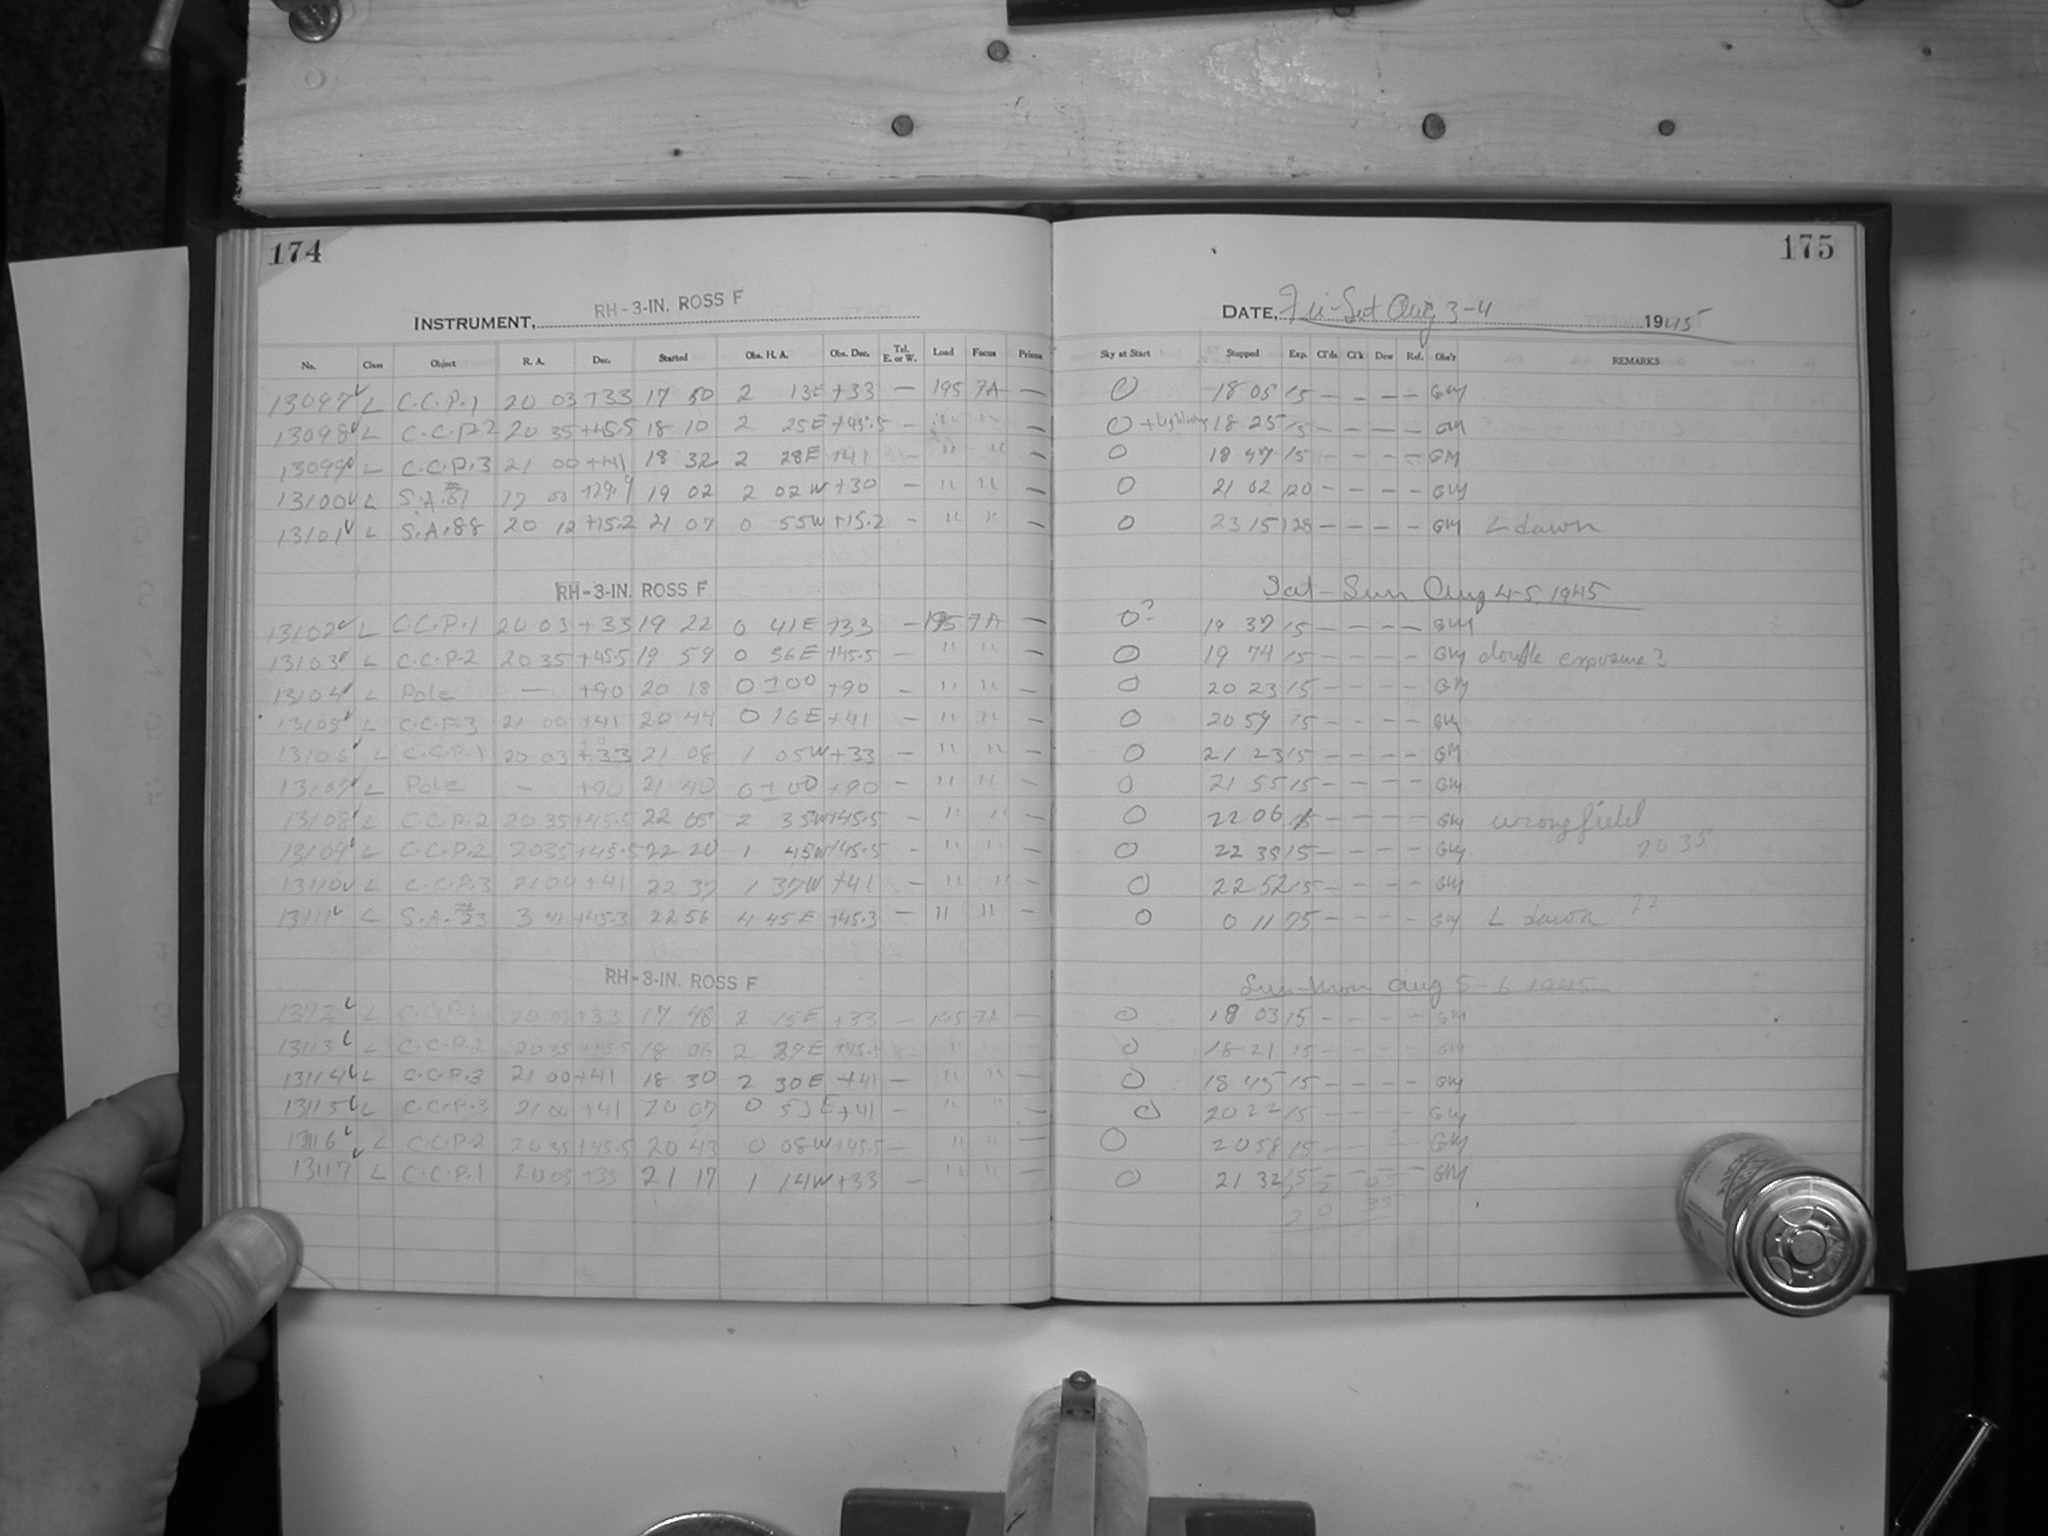 174
175
INSTRUMENT, RH-3-IN. ROSS F
DATE, Fri-Sat Aug 3-4 1945
No. Class Object R. A. Dec. Started Obs. H. A. Obs. Dec. Tel. E. or W. Load Focus Prisms Sky at Start Stopped Exp. Cl'ds Cl'k Dew Ref. Obs'r REMARKS
13097 L C.C.P.1 20 03 +33 17 50 2 13E +33 — 195 7A — O 18 05 15 — — — — GM
13098 L C.C.P.2 20 35 +45.5 18 10 2 25E +45.5 — " " — O + lightning 18 25 15 — — — — GM
13099 L C.C.P.3 21 00 +41 18 32 2 28E +41 — " " — O 18 47 15 — — — — GM
13100 L S.A.81 17 03 +29.9 19 02 2 02W +30 — " " — O 21 02 120 — — — — GM
13101 L S.A.88 20 12 +15.2 21 07 0 55W +15.2 — " " — O 23 15 128 — — — — GM L dawn
RH-3-IN. ROSS F
Sat-Sun Aug 4-5 1945
13102 L C.C.P.1 20 03 +33 19 22 0 41E +33 — 195 7A — O? 19 37 15 — — — — GM
13103 L C.C.P.2 20 35 +45.5 19 59 0 36E +45.5 — " " — O 19 74 15 — — — — GM double exposure?
13104 L Pole — +90 20 18 0 ±00 +90 — " " — O 20 23 15 — — — — GM
13105 L C.C.P.3 21 00 +41 20 44 0 16E +41 — " " — O 20 59 15 — — — — GM
13106 L C.C.P.1 20 03 +33 21 08 1 05W +33 — " " — O 21 23 15 — — — — GM
13107 L Pole — +90 21 40 0 ±00 +90 — " " — O 21 55 15 — — — — GM
13108 L C.C.P.2 20 35 +45.5 22 05 2 35W +45.5 — " " — O 22 06 — — — — GM wrong field
13109 L C.C.P.2 20 35 +45.5 22 20 1 45W +45.5 — " " — O 22 35 15 — — — — GM 20 35
13110 L C.C.P.3 21 00 +41 22 37 1 37W +41 — " " — O 22 52 15 — — — — GM
13111 L S.A. 23 3 41 +45.3 22 56 4 45E +45.3 — " " — O 0 11 75 — — — — GM L dawn
RH-3-IN. ROSS F
Sun-Mon Aug 5-6 1945
13112 L C.C.P.1 20 03 +33 17 48 2 15E +33 — 195 7A — O 18 03 15 — — — — GM
13113 L C.C.P.2 20 35 +45.5 18 06 2 29E +45.5 — " " — O 18 21 15 — — — — GM
13114 L C.C.P.3 21 00 +41 18 30 2 30E +41 — " " — O 18 45 15 — — — — GM
13115 L C.C.P.3 21 00 +41 20 07 0 53E +41 — " " — O 20 22 15 — — — — GM
13116 L C.C.P.2 20 35 +45.5 20 43 0 08W +45.5 — " " — O 20 58 15 — — — — GM
13117 L C.C.P.1 20 03 +33 21 17 1 14W +33 — " " — O 21 32 15 — — — — GM